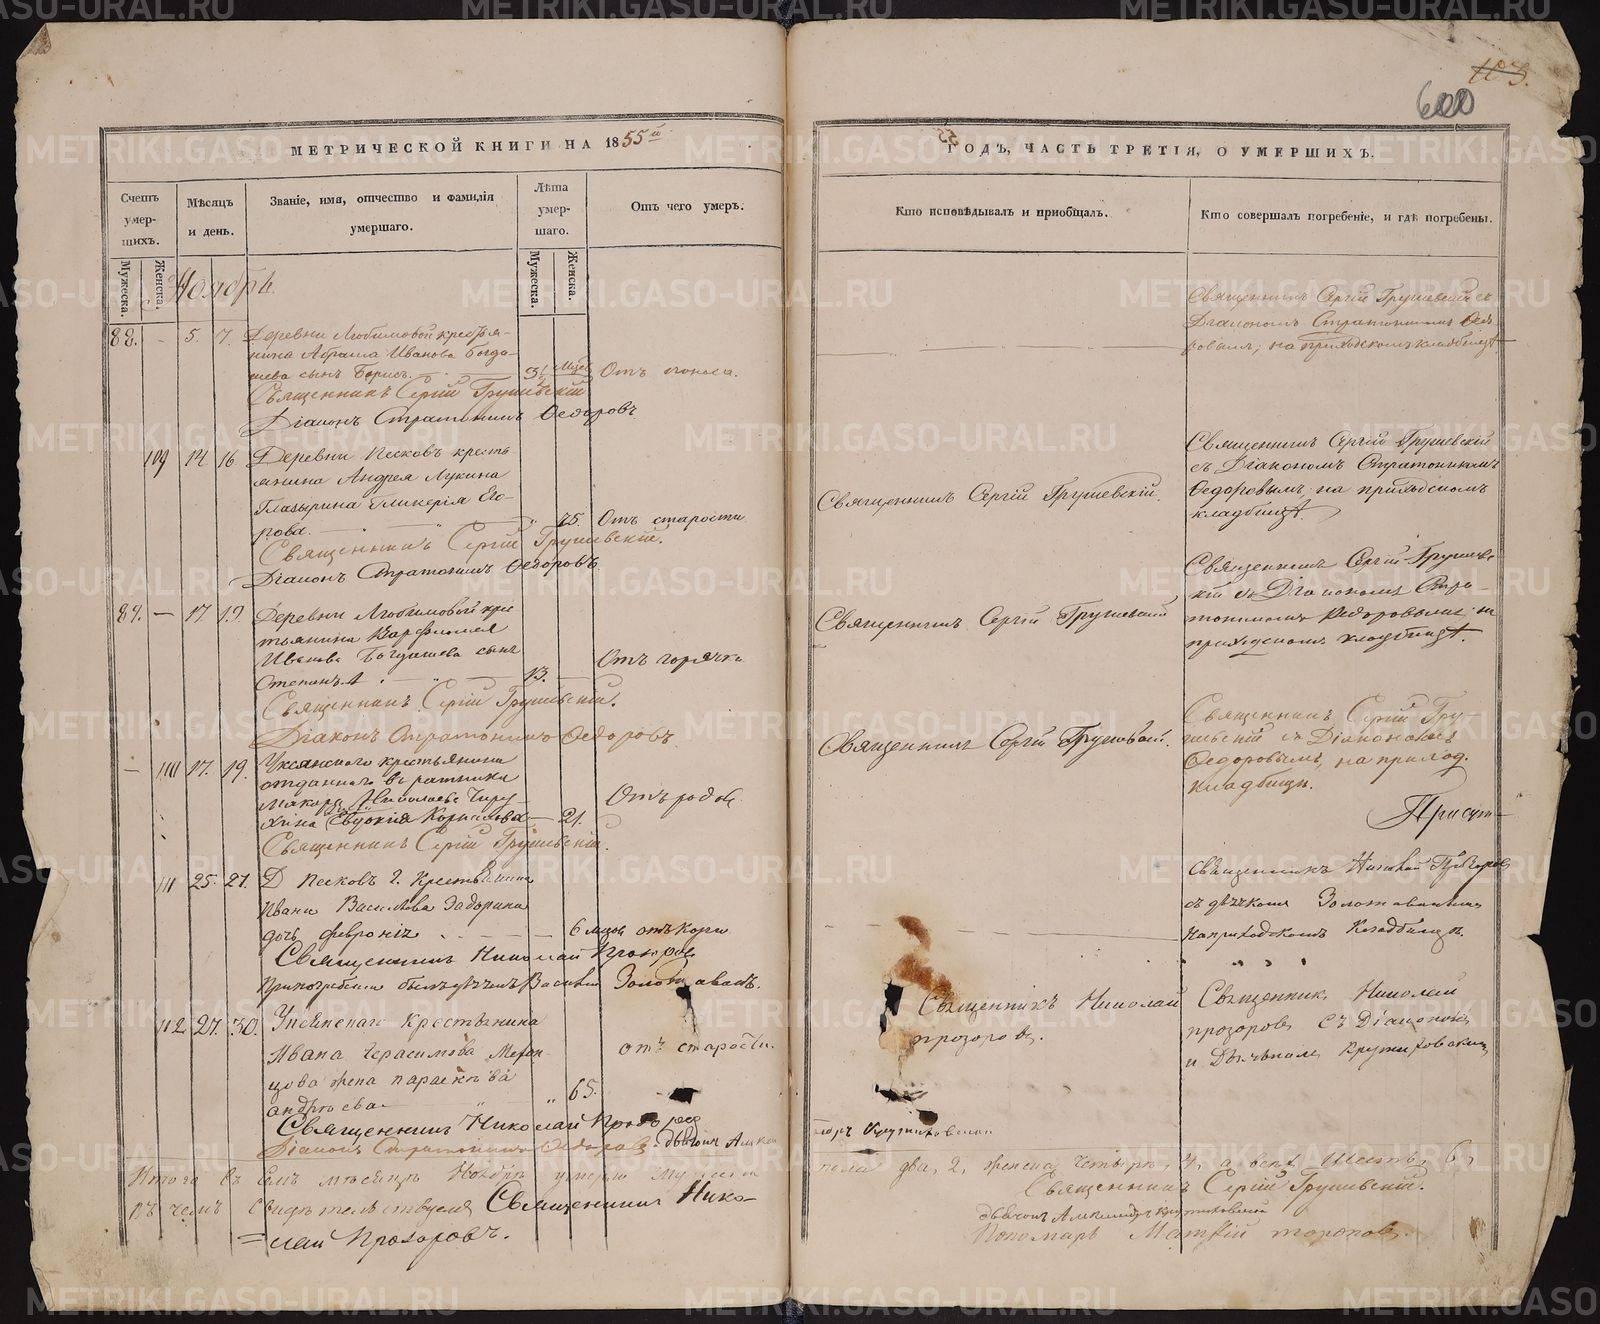 103.
600
МЕТРИЧЕСКОЙ КНИГИ НА 1855й
ГОДЪ, ЧАСТЬ ТРЕТІЯ, О УМЕРШИХЪ.
Счетъ умер-шихъ.
Мѣсяцъ и день.
Званіе, имя, отчество и фамилія умершаго.
Лѣта умер-шаго.
Отъ чего умеръ.
Кто исповѣдывалъ и пріобщалъ.
Кто совершалъ погребеніе, и гдѣ погребены.
Мужеска.
Женска.
Мужеска.
Женска.
Ноябрь.
88. - 5. 7. Деревни Любимовой крестья-
нина Абрама Иванова Богда-
шева сынъ Борисъ.
Священникъ Сергій Грушевскій
Діаконъ Стратоникъ Ѳедоровъ
Священникъ Сергій Грушевскій съ
Діакономъ Стратоникомъ Ѳедо-
ровымъ, на приходскомъ кладбищѣ
109 14 16 Деревни Песковъ кресть
янина Андрея Лукина
Глазырина Гликерія Его-
рова. 75. Отъ старости
Священникъ Сергій Грушевскій.
Діаконъ Стратоникъ Ѳедоровъ
Священникъ Сергій Грушевскій.
Священникъ Сергій Грушевскій
съ Діакономъ Стратоникомъ
Ѳедоровымъ на приходскомъ
кладбищѣ.
89. — 17 19. Деревни Любимовой крес
тьянина Варфоломея
Иванова Богдашева сынъ
Степанъ 13. Отъ горячки
Священникъ Сергій Грушевскій.
Діаконъ Стратоникъ Ѳедоровъ
Священникъ Сергій Грушевскій
Священникъ Сергій Грушевс
кій съ Діакономъ Стра-
тоникомъ Ѳедоровымъ на
приходскомъ кладбищѣ.
— 17. 19. Уксянскаго крестьянина
отданнаго въ ратники
Макара Николаева Чиру-
хина Евдокія Корнилова — 21. Отъ родов
Священникъ Сергій Грушевскій.
Священникъ Сергій Грушевскій.
Священникъ Сергій Гру-
шевскій съ Діакономъ
Ѳедоровымъ, на приход.
кладбищѣ.
Присут-
111 25. 27. Д Песковъ г. Крестьянина
Ивана Васильева Задорина
дочь Февронія 6 мцов отъ Кори
Священникъ Николай Прозоров
При погребеніи былъ дьячекъ Василій Золотавинъ.
Священникъ Николай Прозоров
съ дьячкомъ Золотавинымъ
на приходскомъ Кладбищѣ.
112. 27. 30. Уксянскаго Крестьянина
Ивана Герасимова
жена Параскева
андреева 65. отъ старости.
Священникъ Николай Прозоров
Діаконъ Стратоникъ Ѳедоровъ. дьячокъ Алексан
Священникъ Николай
прозоровъ.
Священник. Николай
прозоровъ съ Діакономъ
и Дьячкомъ Кружковскимъ
Итого въ семъ мѣсяцѣ Ноябрѣ умерло Мужеска
пола два, 2, женска четыре, 4, а всѣхъ Шесть, 6,
въ чемъ свидѣтельствуемъ Священникъ Нико-
=лай Прозоровъ.
Священникъ Сергій Грушевскій.
дьячокъ Александръ
Пономарь Матвій торопов.
METRIKI.GASO-URAL.RU